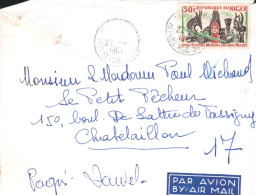 30F RÉPUBLIQUE DU NIGER
Monsieur & Madame Paul Michaud
Le Petit Pêcheur
150, boul. De Lattre de Tassigny
Chatelaillon
17
PAR AVION
BY AIR MAIL